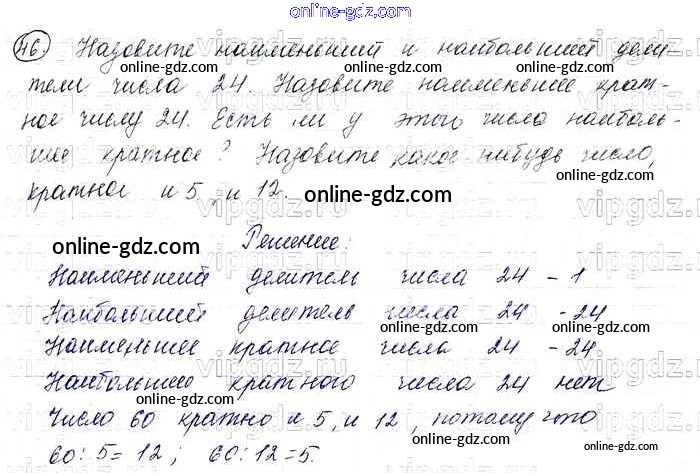 online-gdz.com
46. Назовите наименьший и наибольший дели-
тели числа 24. Назовите наименьшее крат-
ное числу 24. Есть ли у этого числа наиболь-
шее кратное? Назовите какое-нибудь число,
кратное и 5, и 12.
online-gdz.com
online-gdz.com
Решение:
Наименьший делитель числа 24 - 1
Наибольший делитель числа 24 - 24
online-gdz.com online-gdz.com
Наименьшее кратное числа 24 - 24
online-gdz.com online-gdz.com
Наибольшего кратного числа 24 нет
online-gdz.com online-gdz.com
Число 60 кратно и 5, и 12, потому что
60 : 5 = 12; 60 : 12 = 5.
online-gdz.com online-gdz.com